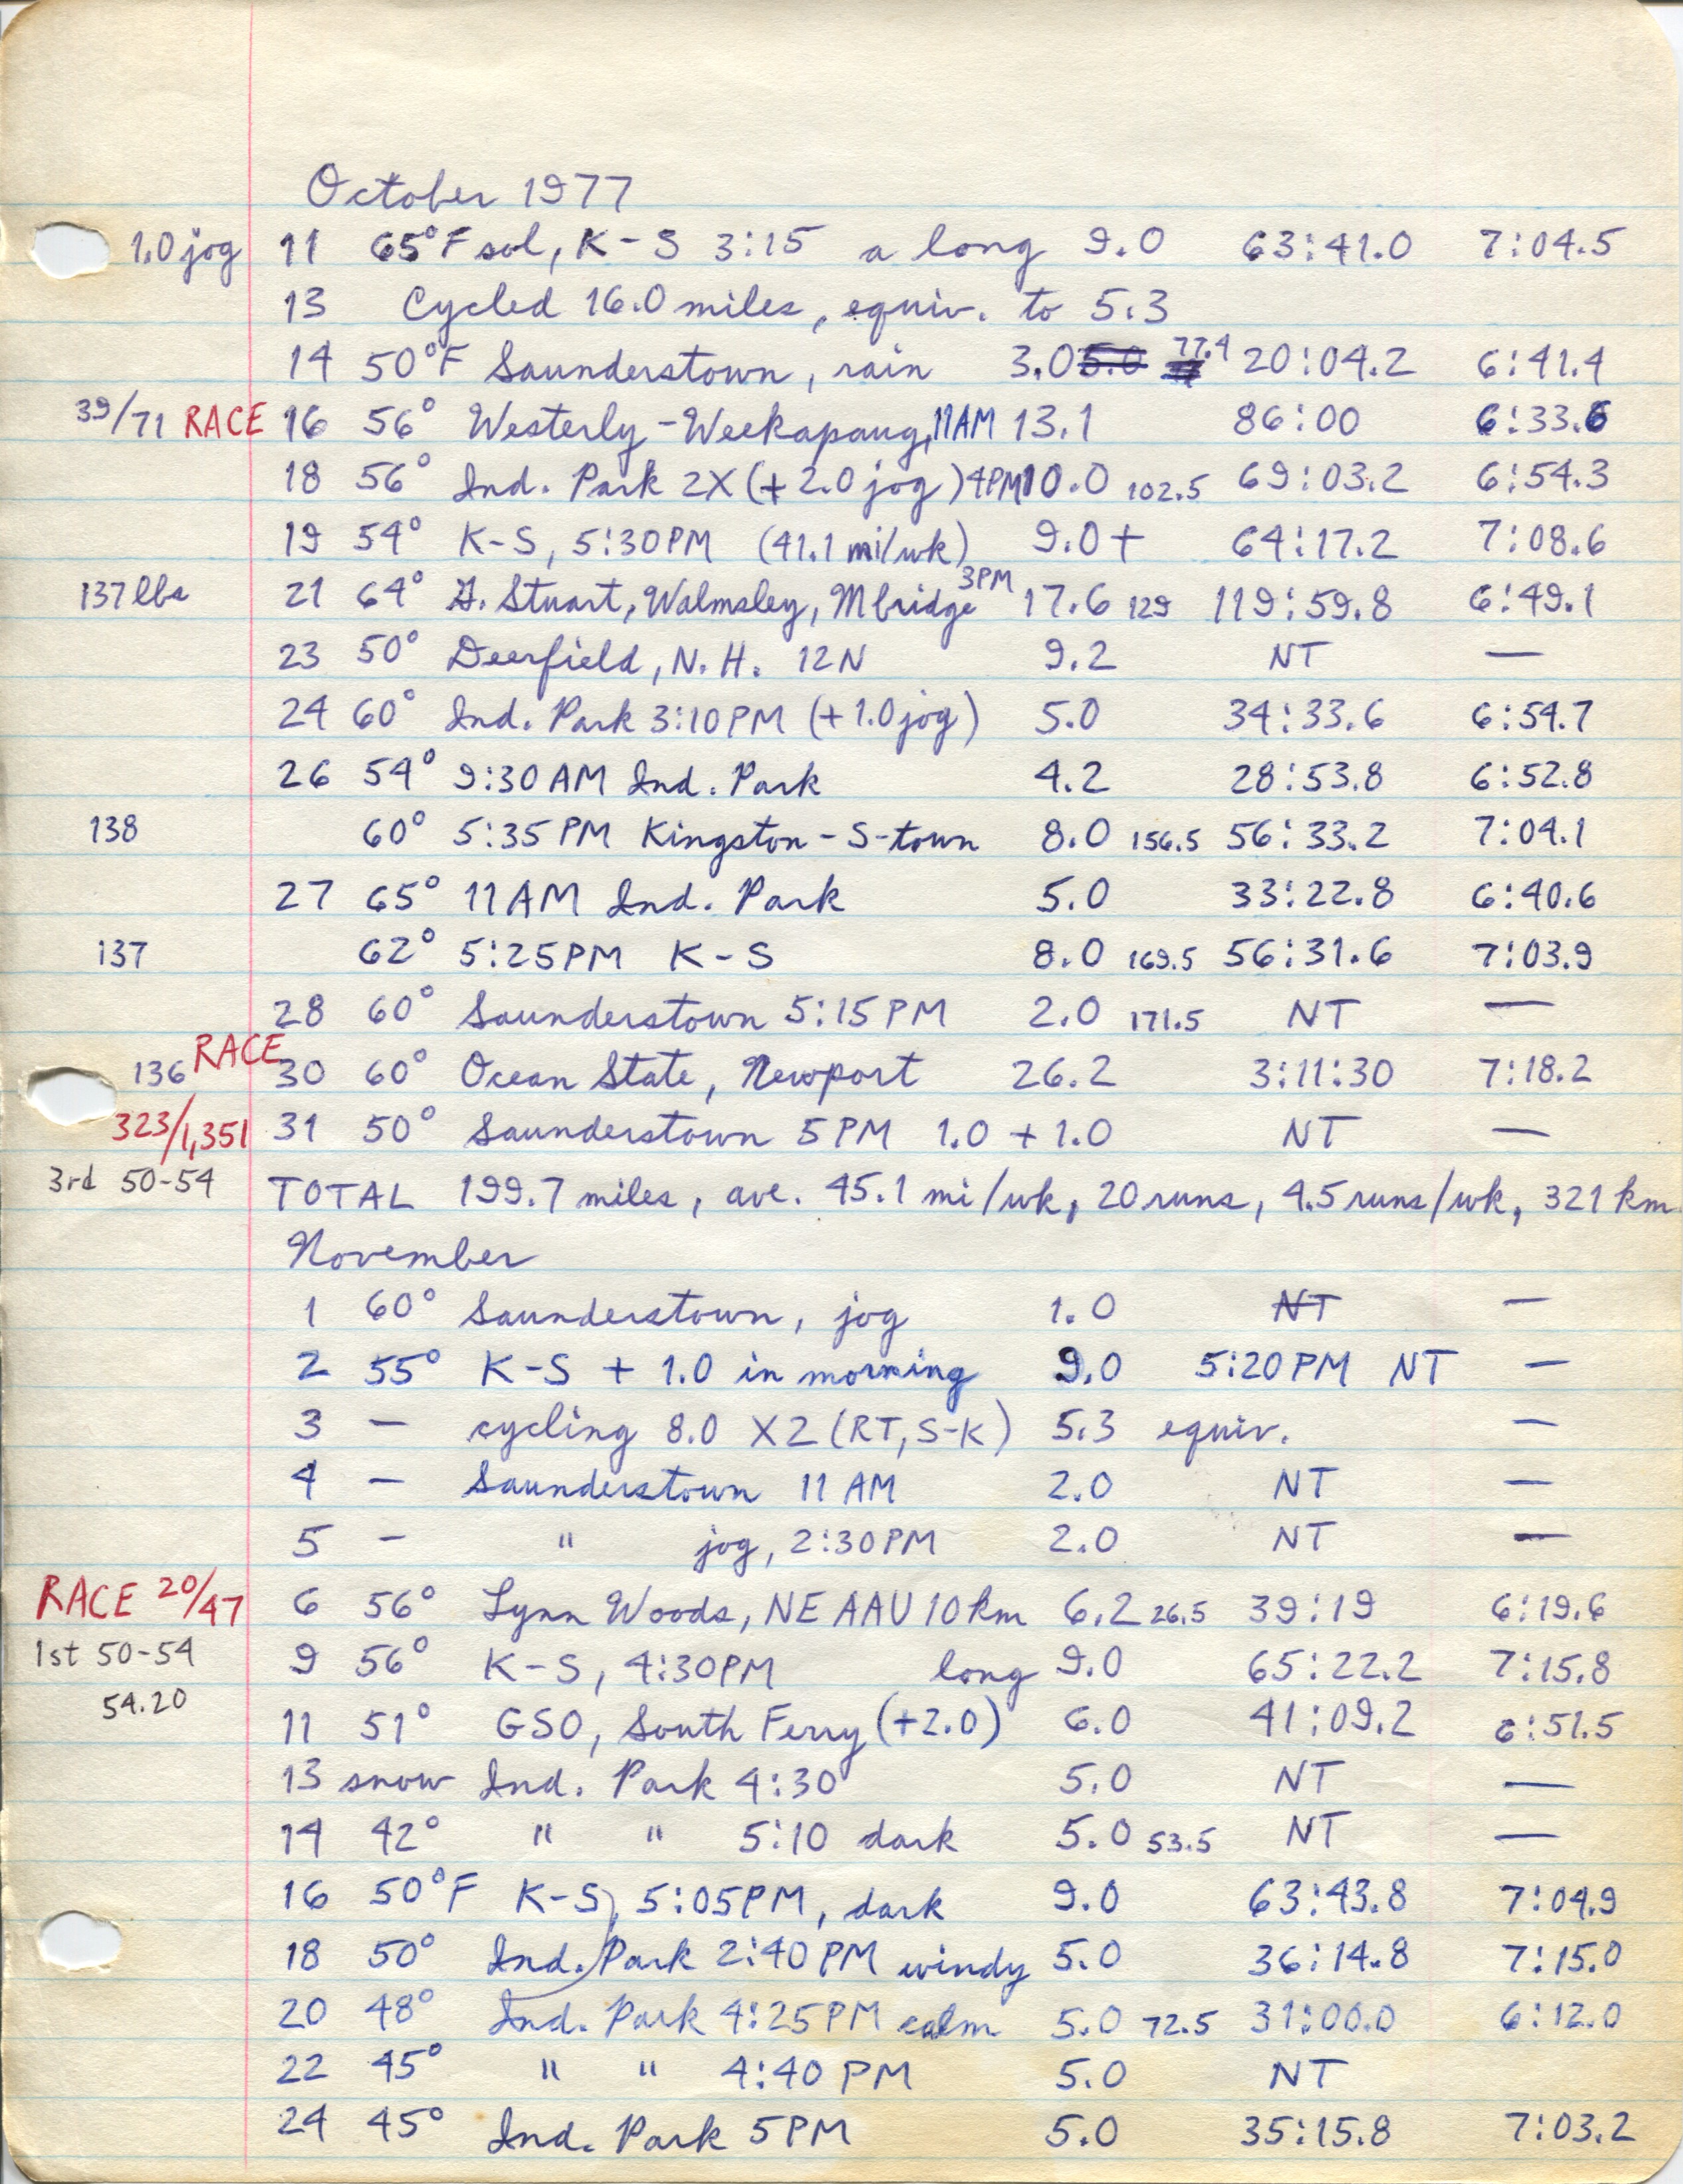 October 1977
1.0 jog 11 65°F sol, K-S 3:15 a long 9.0 63:41.0 7:04.5
13 Cycled 16.0 miles, equiv. to 5.3
14 50°F Saunderstown, rain 3.0 5.0 77.4 20:04.2 6:41.4
39/71 RACE 16 56° Westerly-Weekapaug, 11AM 13.1 86:00 6:33.6
18 56° Ind. Park 2X (+2.0 jog) 4PM 10.0 102.5 69:03.2 6:54.3
19 54° K-S, 5:30PM (41.1 mi/wk) 9.0+ 64:17.2 7:08.6
137 lbs 21 64° G. Stuart, Walmsley, Mbridge 3PM 17.6 129 119:59.8 6:49.1
23 50° Deerfield, N.H. 12N 9.2 NT —
24 60° Ind. Park 3:10PM (+1.0 jog) 5.0 34:33.6 6:54.7
26 54° 9:30AM Ind. Park 4.2 28:53.8 6:52.8
138 60° 5:35PM Kingston-S-town 8.0 156.5 56:33.2 7:04.1
27 65° 11AM Ind. Park 5.0 33:22.8 6:40.6
137 62° 5:25PM K-S 8.0 169.5 56:31.6 7:03.9
28 60° Saunderstown 5:15PM 2.0 171.5 NT —
136 RACE 30 60° Ocean State, Newport 26.2 3:11:30 7:18.2
323/1,351 31 50° Saunderstown 5PM 1.0 + 1.0 NT —
3rd 50-54 TOTAL 199.7 miles, ave. 45.1 mi/wk, 20 runs, 4.5 runs/wk, 321 km
November
1 60° Saunderstown, jog 1.0 NT —
2 55° K-S + 1.0 in morning 9.0 5:20PM NT —
3 — cycling 8.0 X2 (RT, S-K) 5.3 equiv. —
4 — Saunderstown 11AM 2.0 NT —
5 — " jog, 2:30PM 2.0 NT —
RACE 20/47 6 56° Lynn Woods, NE AAU 10km 6.2 26.5 39:19 6:19.6
1st 50-54 9 56° K-S, 4:30PM long 9.0 65:22.2 7:15.8
54.20 11 51° GSO, South Ferry (+2.0) 6.0 41:09.2 6:51.5
13 snow Ind. Park 4:30 5.0 NT —
14 42° " " 5:10 dark 5.0 53.5 NT —
16 50°F K-S, 5:05PM, dark 9.0 63:43.8 7:04.9
18 50° Ind. Park 2:40PM windy 5.0 36:14.8 7:15.0
20 48° Ind. Park 4:25PM calm 5.0 72.5 31:00.0 6:12.0
22 45° " " 4:40PM 5.0 NT
24 45° Ind. Park 5PM 5.0 35:15.8 7:03.2